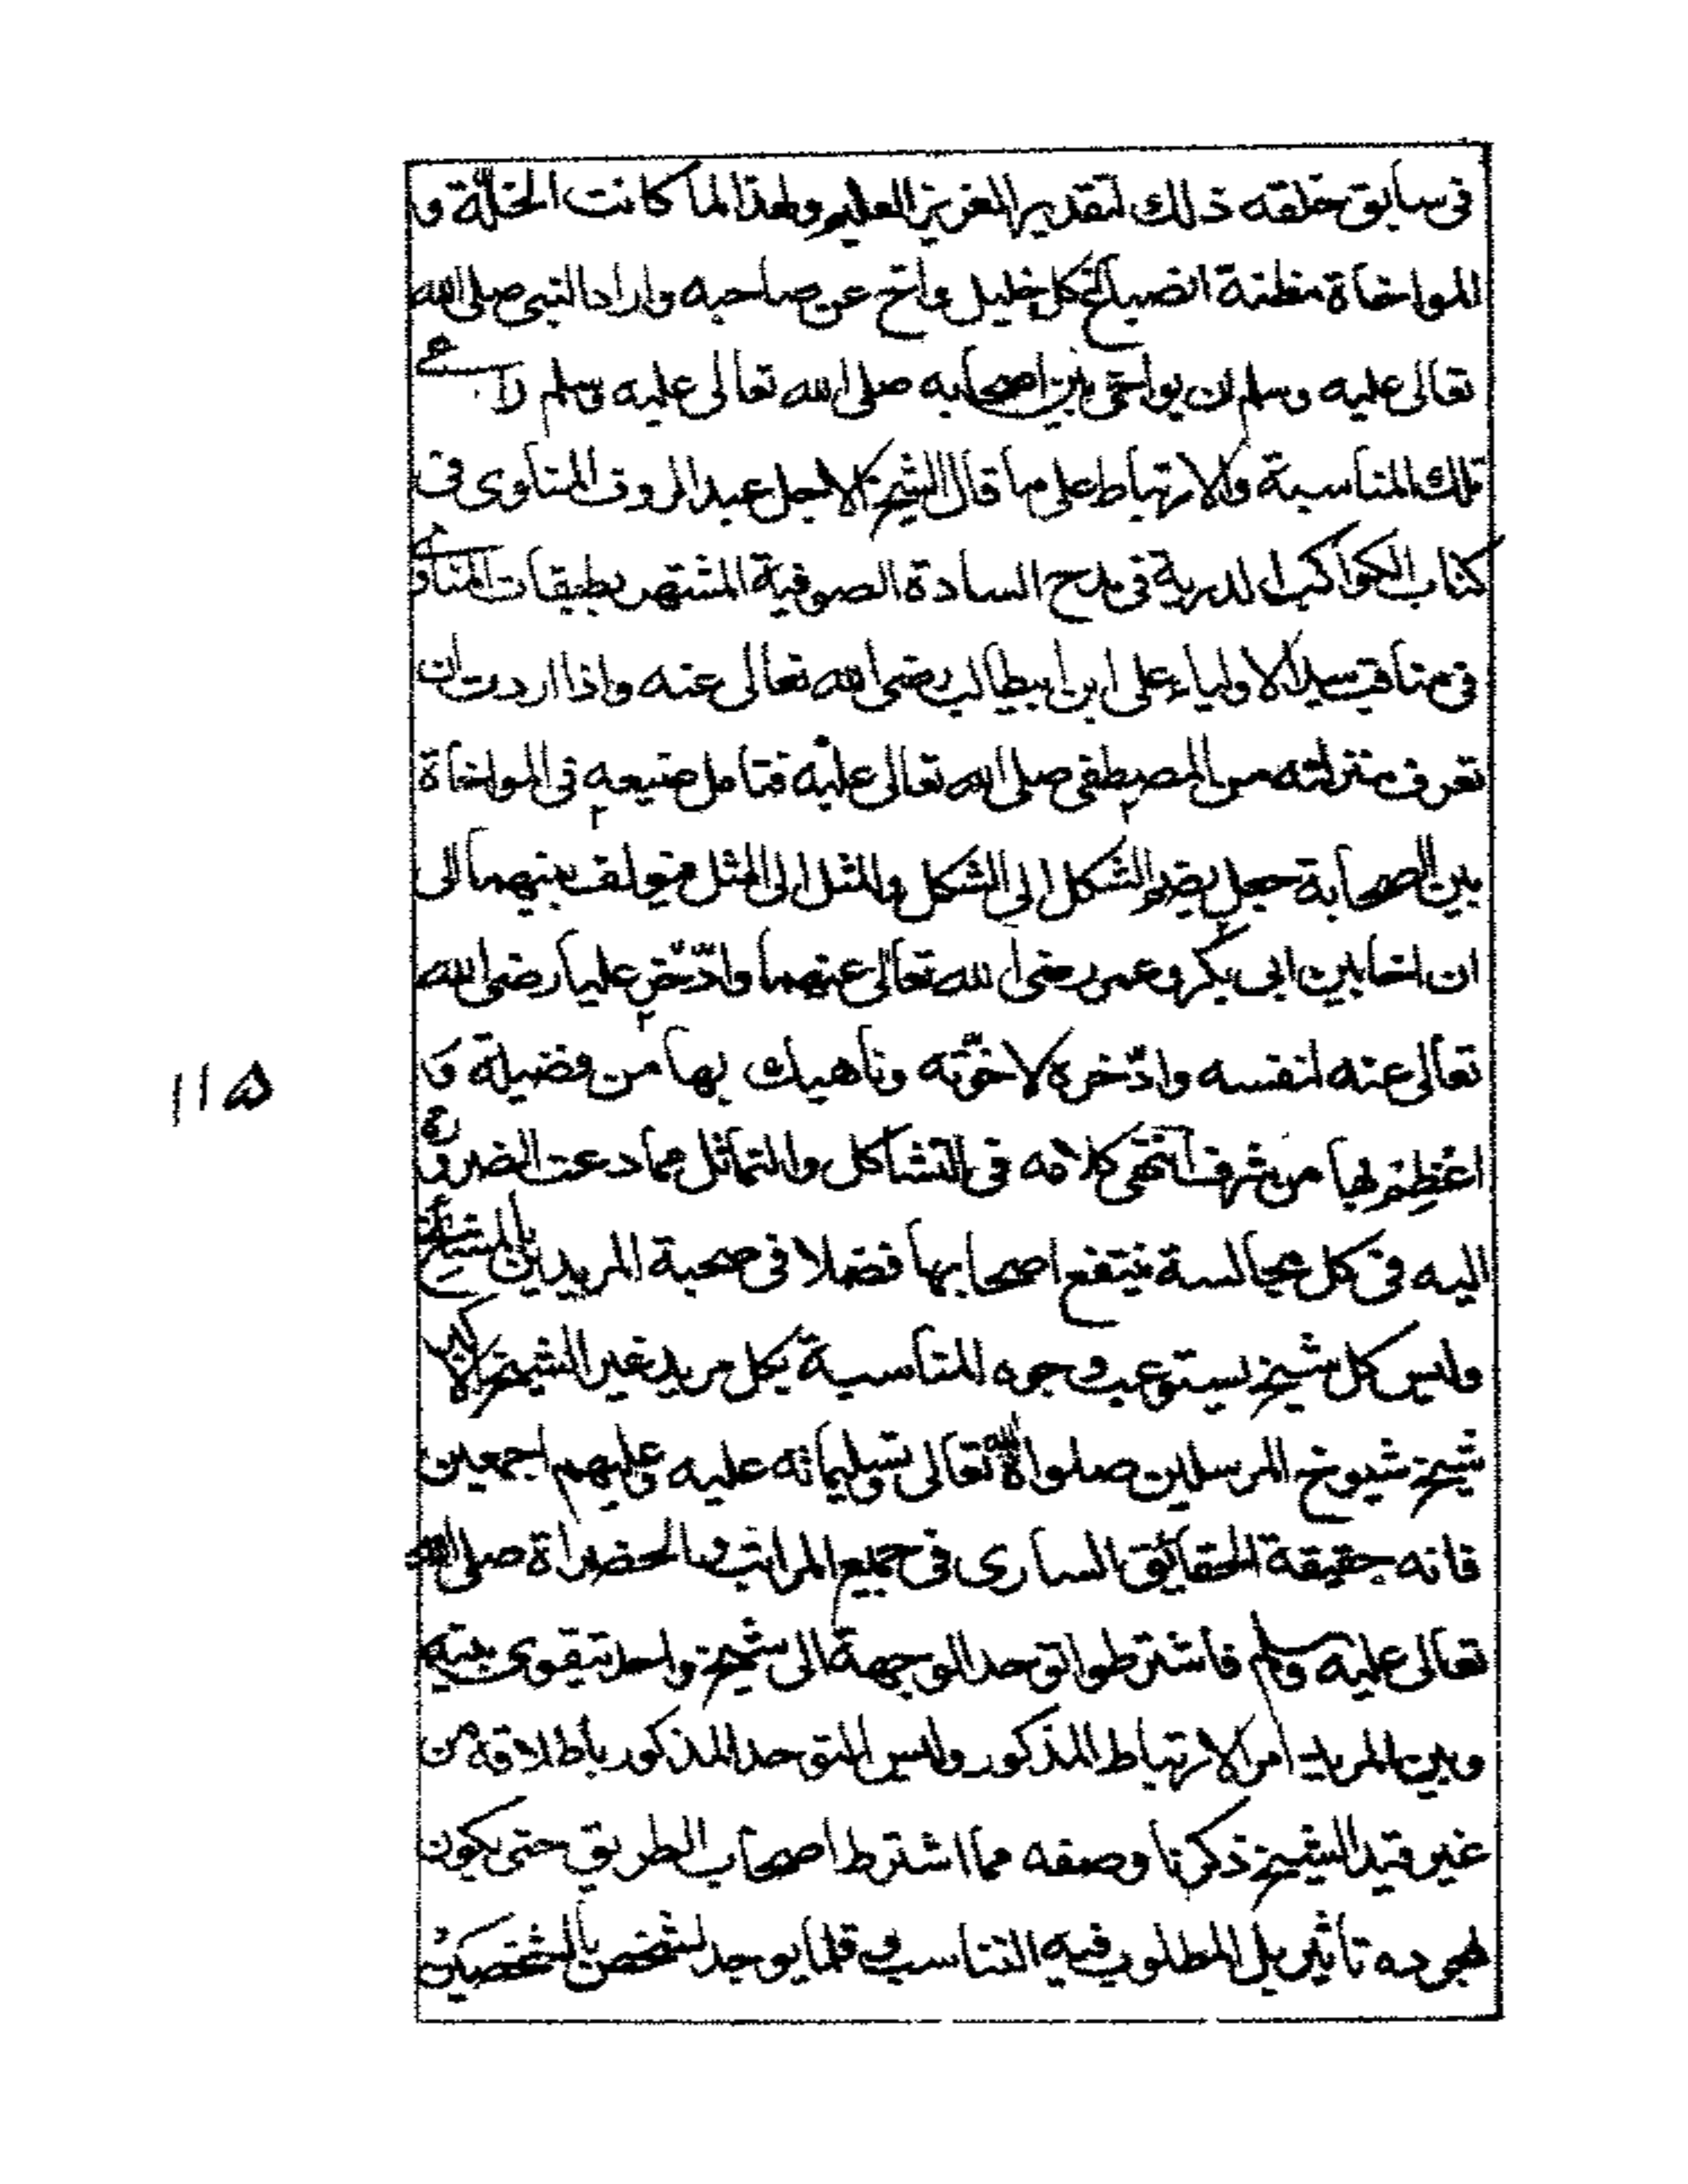 فى سابق خلقه ذلك لتقدير العزيز العليم ولهذا لما كانت الخلّة و
المواخاة مظنة انصباغ كل خليل واخ عن صاحبه واراد النبى صلى الله
تعالى عليه وسلم ان يواخى بين اصحابه صلى الله تعالى عليه وسلم راعى
تلك المناسبة والارتباط على ما قال الشيخ الاجل عبد الروف المناوى فى
كتاب الكواكب الدرية فى مدح السادة الصوفية المشتهر بطبقات المناوى
فى مناقب سيد الاولياء على ابن ابيطالب رضى الله تعالى عنه واذا اردت ان
تعرف منزلته من المصطفى صلى الله تعالى عليه فتامل صنيعه فى المواخاة
بين الصحابة جعل يضم الشكل الى الشكل والمثل الى المثل فيولف بينهما الى
ان اخا بين ابى بكر وعمر رضى الله تعالى عنهما وادّخر عليا رضى الله
تعالى عنه لنفسه وادّخره لاخوّته وناهيك بها من فضيلة و
اعظِم بها من شرف انتهى كلامه فى التشاكل والتماثل مما دعت الضرورة
اليه فى كل مجالسة ينتفع اصحابها فضلا فى صحبة المريدين بالمشايخ
وليس كل شيخ يستوعب وجوه المناسبة بكل مريد غير الشيخ الاكبر
شيخ شيوخ المرسلين صلواة الله تعالى وتسليماته عليه وعليهم اجمعين
فانه حقيقة الحقائق السارى فى جميع المراتب والحضراة صلى الله
تعالى عليه وسلم فاشترطوا توحد الوجهة الى شيخ واحد تيقوى بينه
وبين المريد امر الارتباط المذكور وليس التوحد المذكور باطلاقه من
غير قيد الشيخ ذكرنا وصفه مما اشترط اصحاب الطريق حتى يكون
لمجرده تاثير بل المطلوب فيه التناسب وقلما يوجد لشخص بالشخصين
١١٥